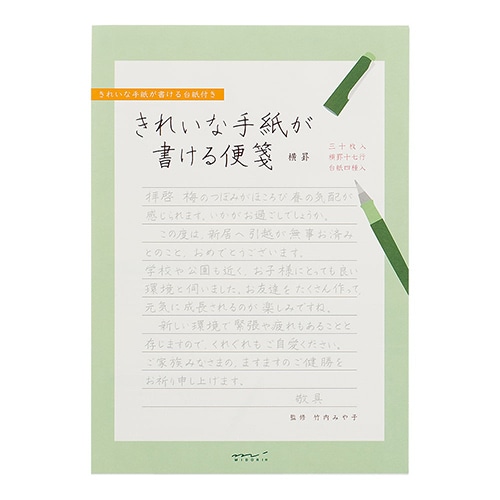 きれいな手紙が書ける台紙付き
きれいな手紙が
書ける便箋 横罫
三十枚入
横罫十七行
台紙四種入
拝啓 梅のつぼみがほころび 春の気配が
感じられます。いかがお過ごしでしょうか。
この度は、新居へ引越が無事お済み
とのこと、おめでとうございます。
学校や公園も近く、お子様にとっても良い
環境と伺いました。お友達をたくさん作って
元気に成長されるのが楽しみですね。
新しい環境で緊張や疲れもあることと
存じますので、くれぐれもご自愛ください。
ご家族みなさまの、ますますのご健勝を
お祈り申し上げます。
敬具
監修 竹内みや子
MIDORI